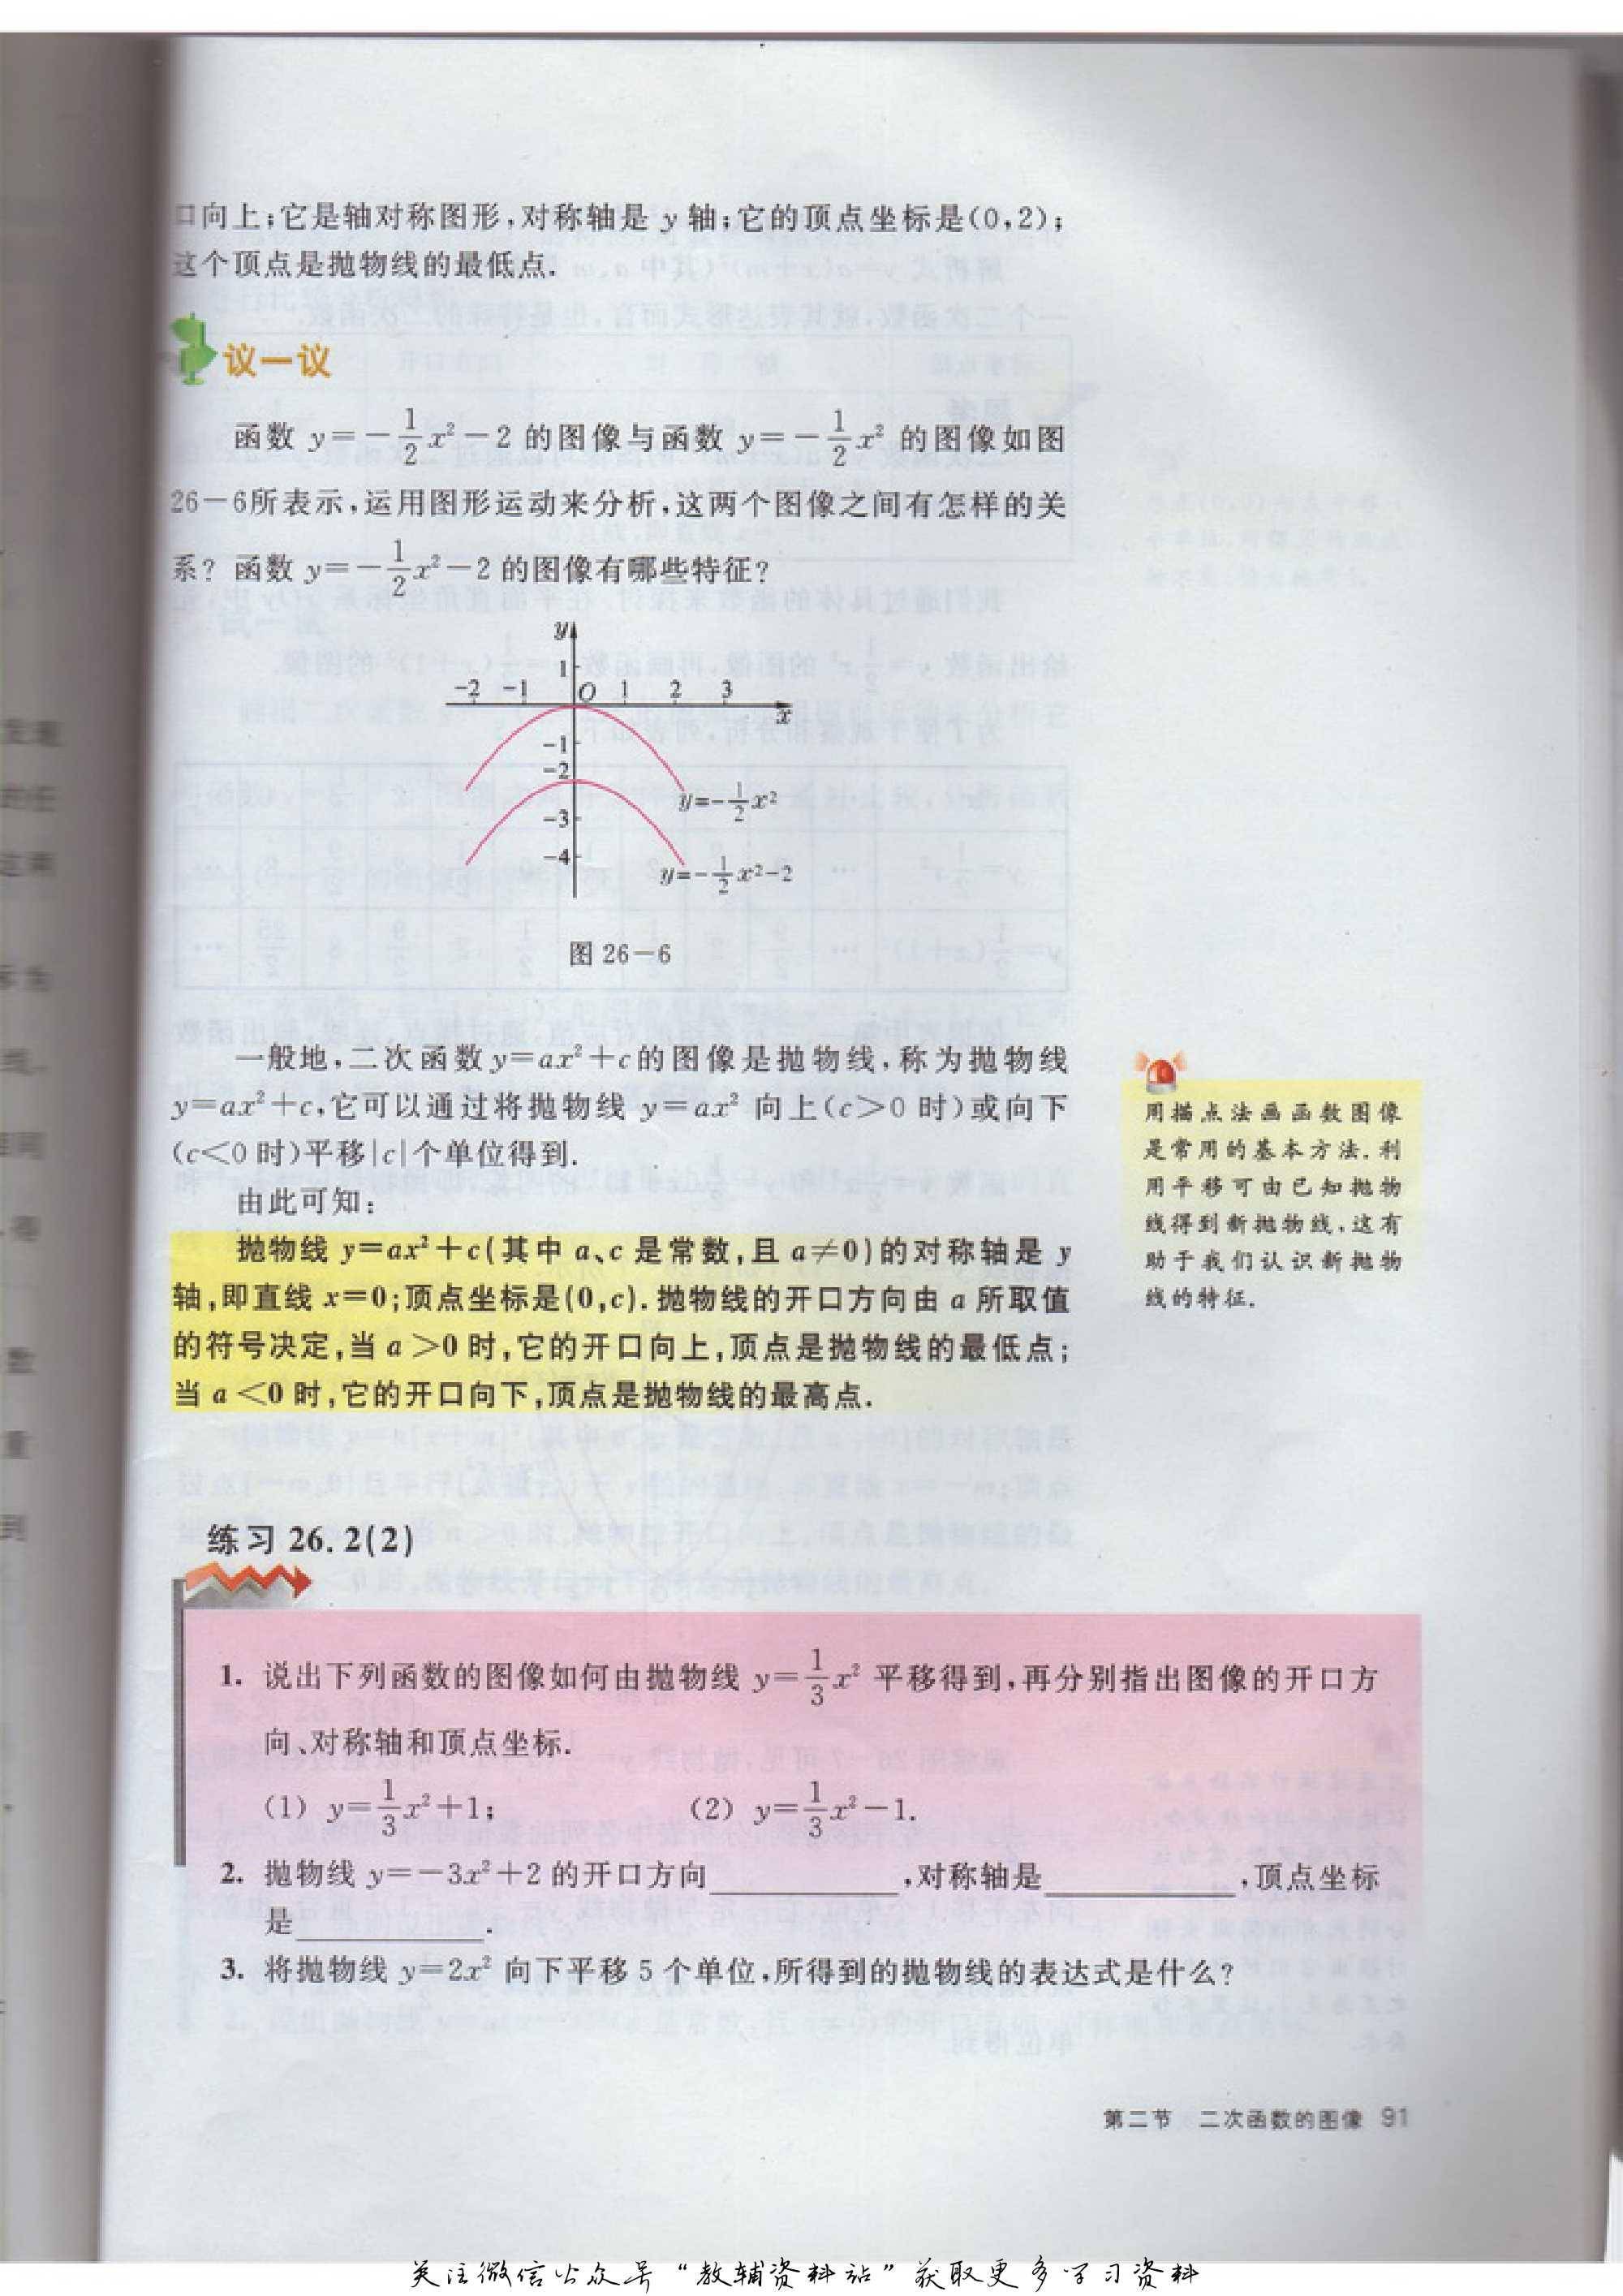 口向上;它是轴对称图形,对称轴是 y 轴;它的顶点坐标是(0,2);
这个顶点是抛物线的最低点.
议一议
函数 y=-1/2x²-2 的图像与函数 y=-1/2x² 的图像如图
26-6所表示,运用图形运动来分析,这两个图像之间有怎样的关
系? 函数 y=-1/2x²-2 的图像有哪些特征?
y
1
-2 -1 O 1 2 3
x
-1
-2
y=-1/2x²
-3
-4
y=-1/2x²-2
图 26-6
一般地,二次函数 y=ax²+c 的图像是抛物线,称为抛物线
y=ax²+c,它可以通过将抛物线 y=ax² 向上(c>0 时)或向下
(c<0 时)平移|c|个单位得到.
由此可知:
抛物线 y=ax²+c(其中 a、c 是常数,且 a≠0)的对称轴是 y
轴,即直线 x=0;顶点坐标是(0,c). 抛物线的开口方向由 a 所取值
的符号决定,当 a>0 时,它的开口向上,顶点是抛物线的最低点;
当 a<0 时,它的开口向下,顶点是抛物线的最高点.
用描点法画函数图像
是常用的基本方法. 利
用平移可由已知抛物
线得到新抛物线,这有
助于我们认识新抛物
线的特征.
练习 26.2(2)
1. 说出下列函数的图像如何由抛物线 y=1/3x² 平移得到,再分别指出图像的开口方
向、对称轴和顶点坐标.
(1) y=1/3x²+1; (2) y=1/3x²-1.
2. 抛物线 y=-3x²+2 的开口方向____,对称轴是____,顶点坐标
是____.
3. 将抛物线 y=2x² 向下平移 5 个单位,所得到的抛物线的表达式是什么?
第二节 二次函数的图像 91
关注微信公众号“教辅资料站”获取更多学习资料